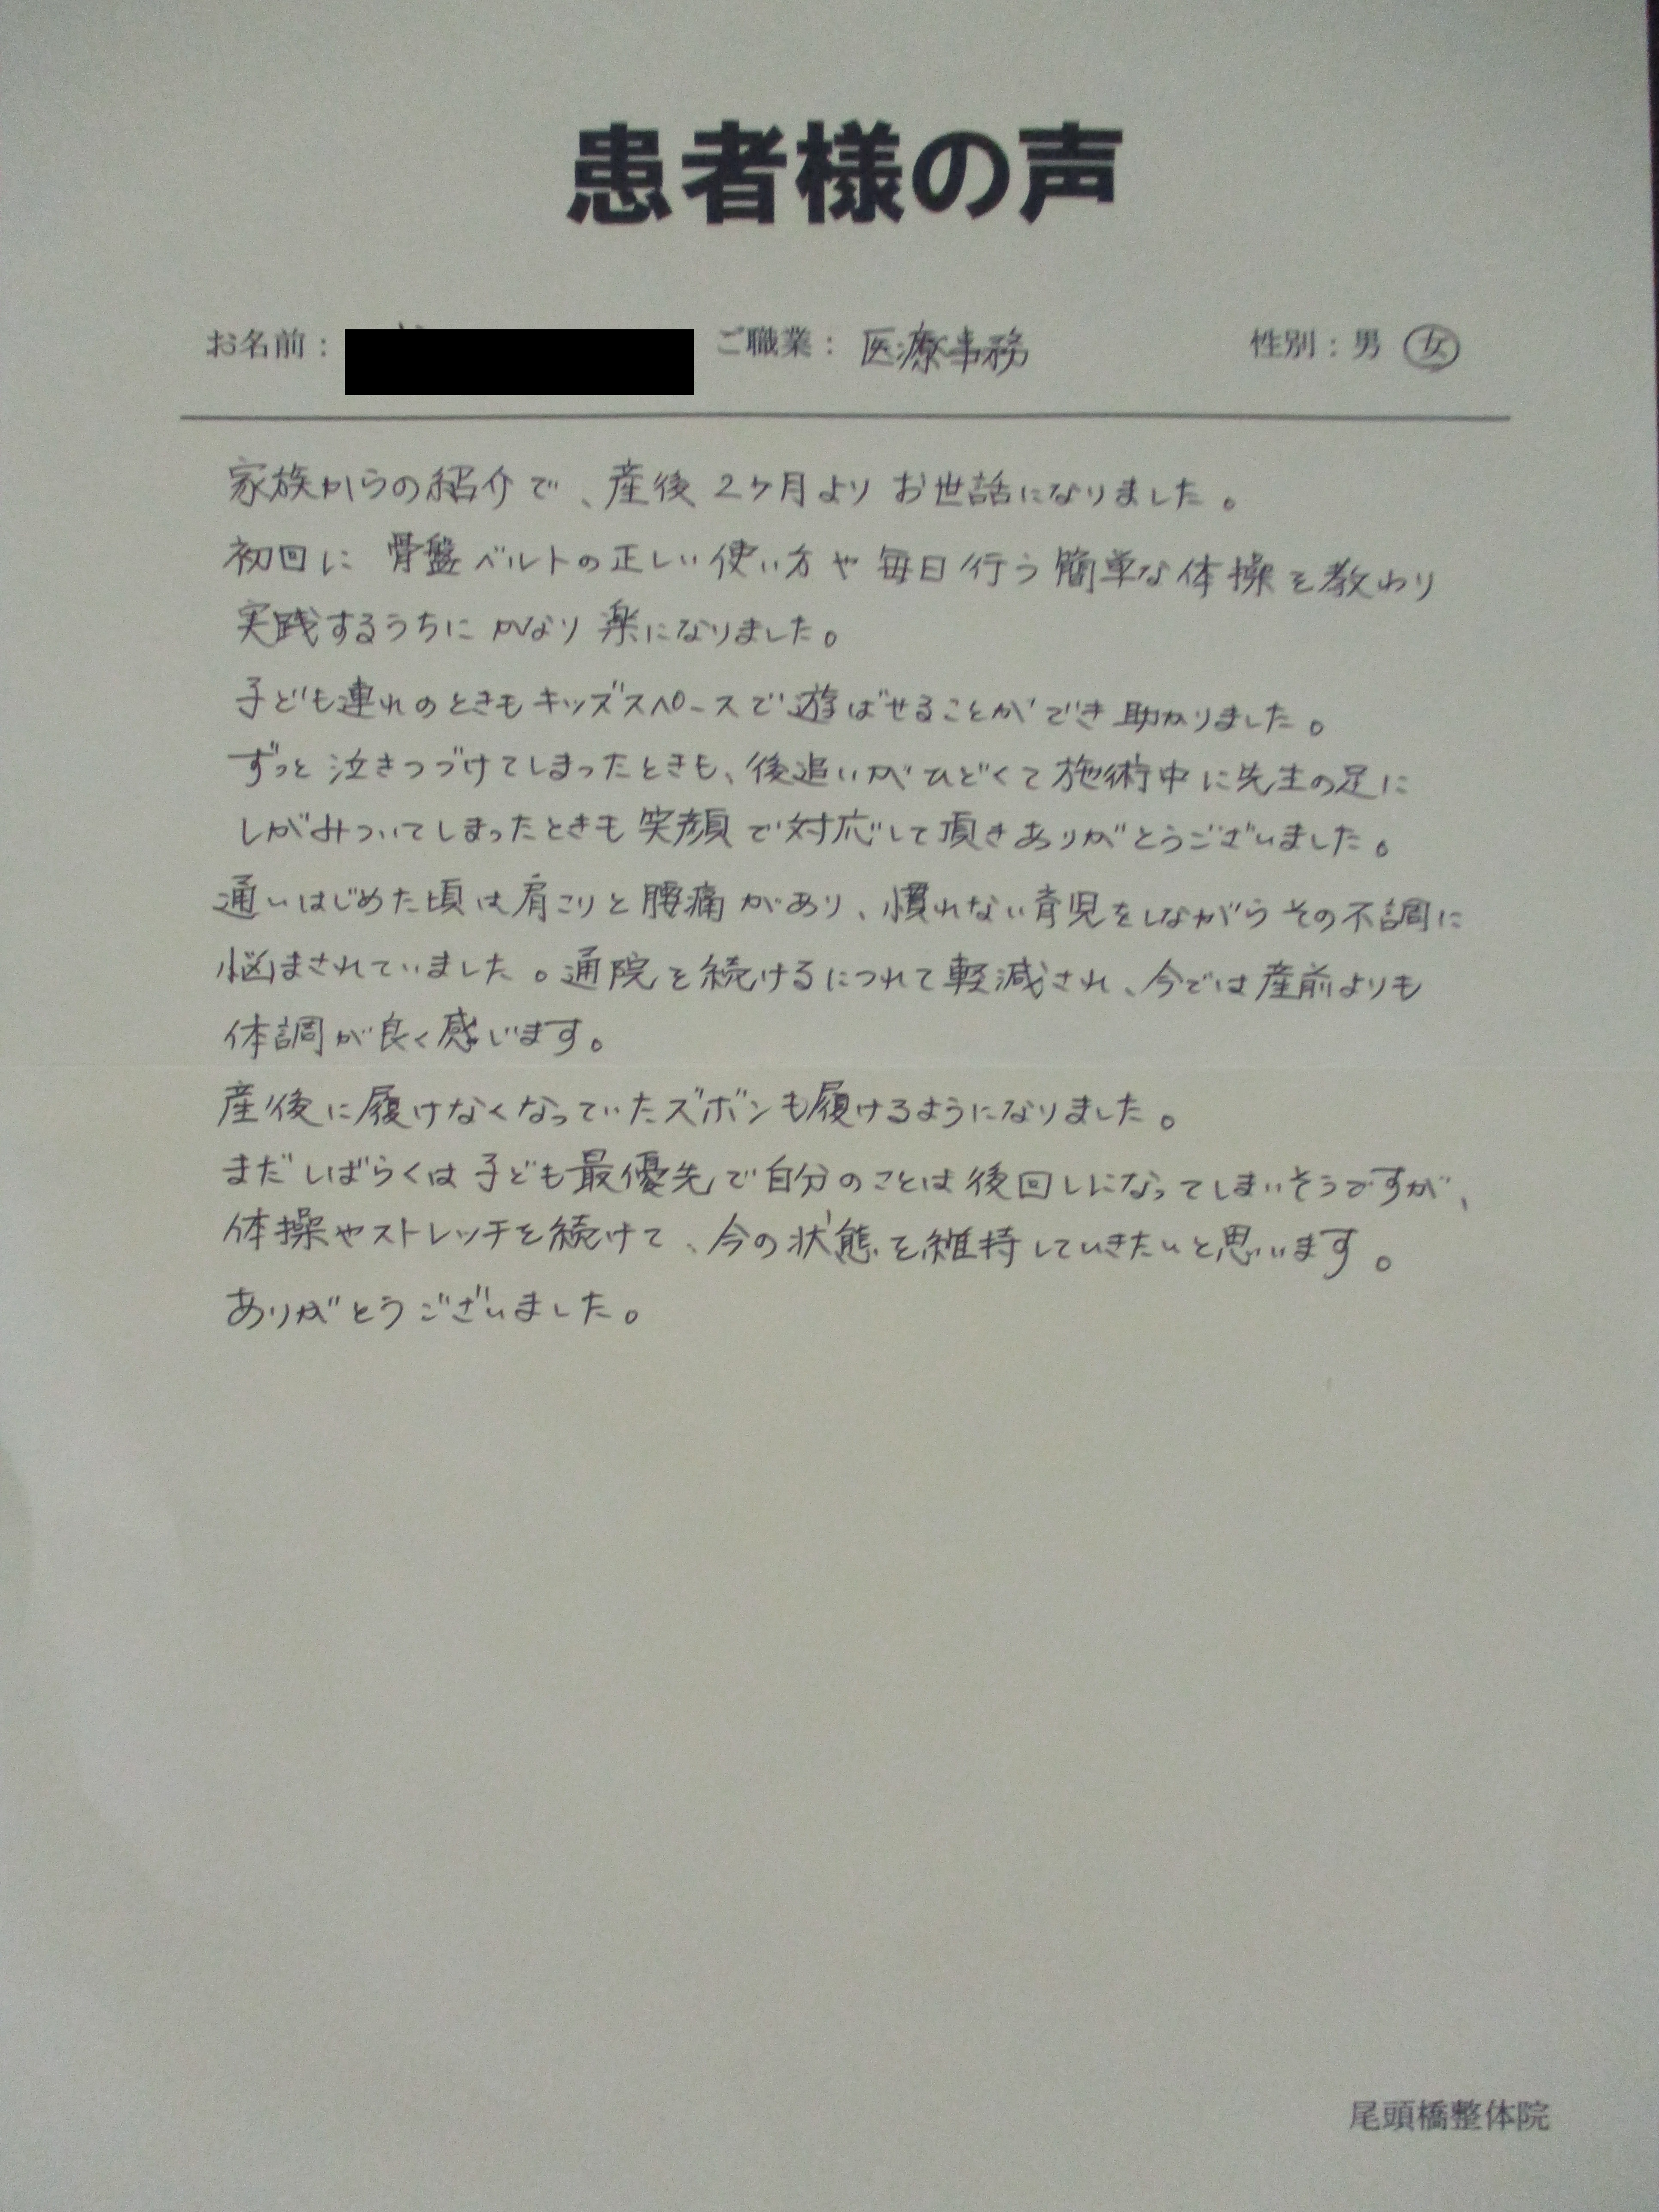 患者様の声
お名前： ご職業： 医療事務 性別：男 女
家族からの紹介で、産後2ヶ月よりお世話になりました。
初回に骨盤ベルトの正しい使い方や毎日行う簡単な体操を教わり
実践するうちにかなり楽になりました。
子ども連れのときもキッズスペースで遊ばせることができ助かりました。
ずっと泣きつづけてしまったときも、後追いがひどくて施術中に先生の足に
しがみついてしまったときも笑顔で対応して頂きありがとうございました。
通いはじめた頃は肩こりと腰痛があり、慣れない育児をしながらその不調に
悩まされていました。通院を続けるにつれて軽減され、今では産前よりも
体調が良く感じます。
産後に履けなくなっていたズボンも履けるようになりました。
まだしばらくは子ども最優先で自分のことは後回しになってしまいそうですが、
体操やストレッチを続けて、今の状態を維持していきたいと思います。
ありがとうございました。
尾頭橋整体院